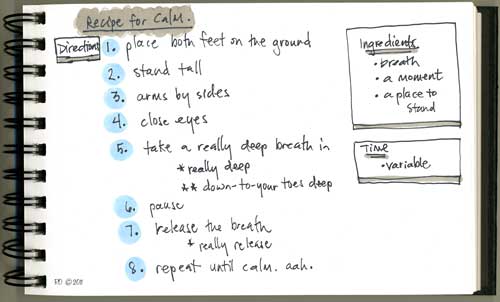 Recipe for Calm.
Directions
1. place both feet on the ground
2. stand tall
3. arms by sides
4. close eyes
5. take a really deep breath in
* really deep
** down-to-your toes deep
6. pause
7. release the breath
* really release
8. repeat until calm. aah.
Ingredients
• breath
• a moment
• a place to
stand
Time
• variable
©2011